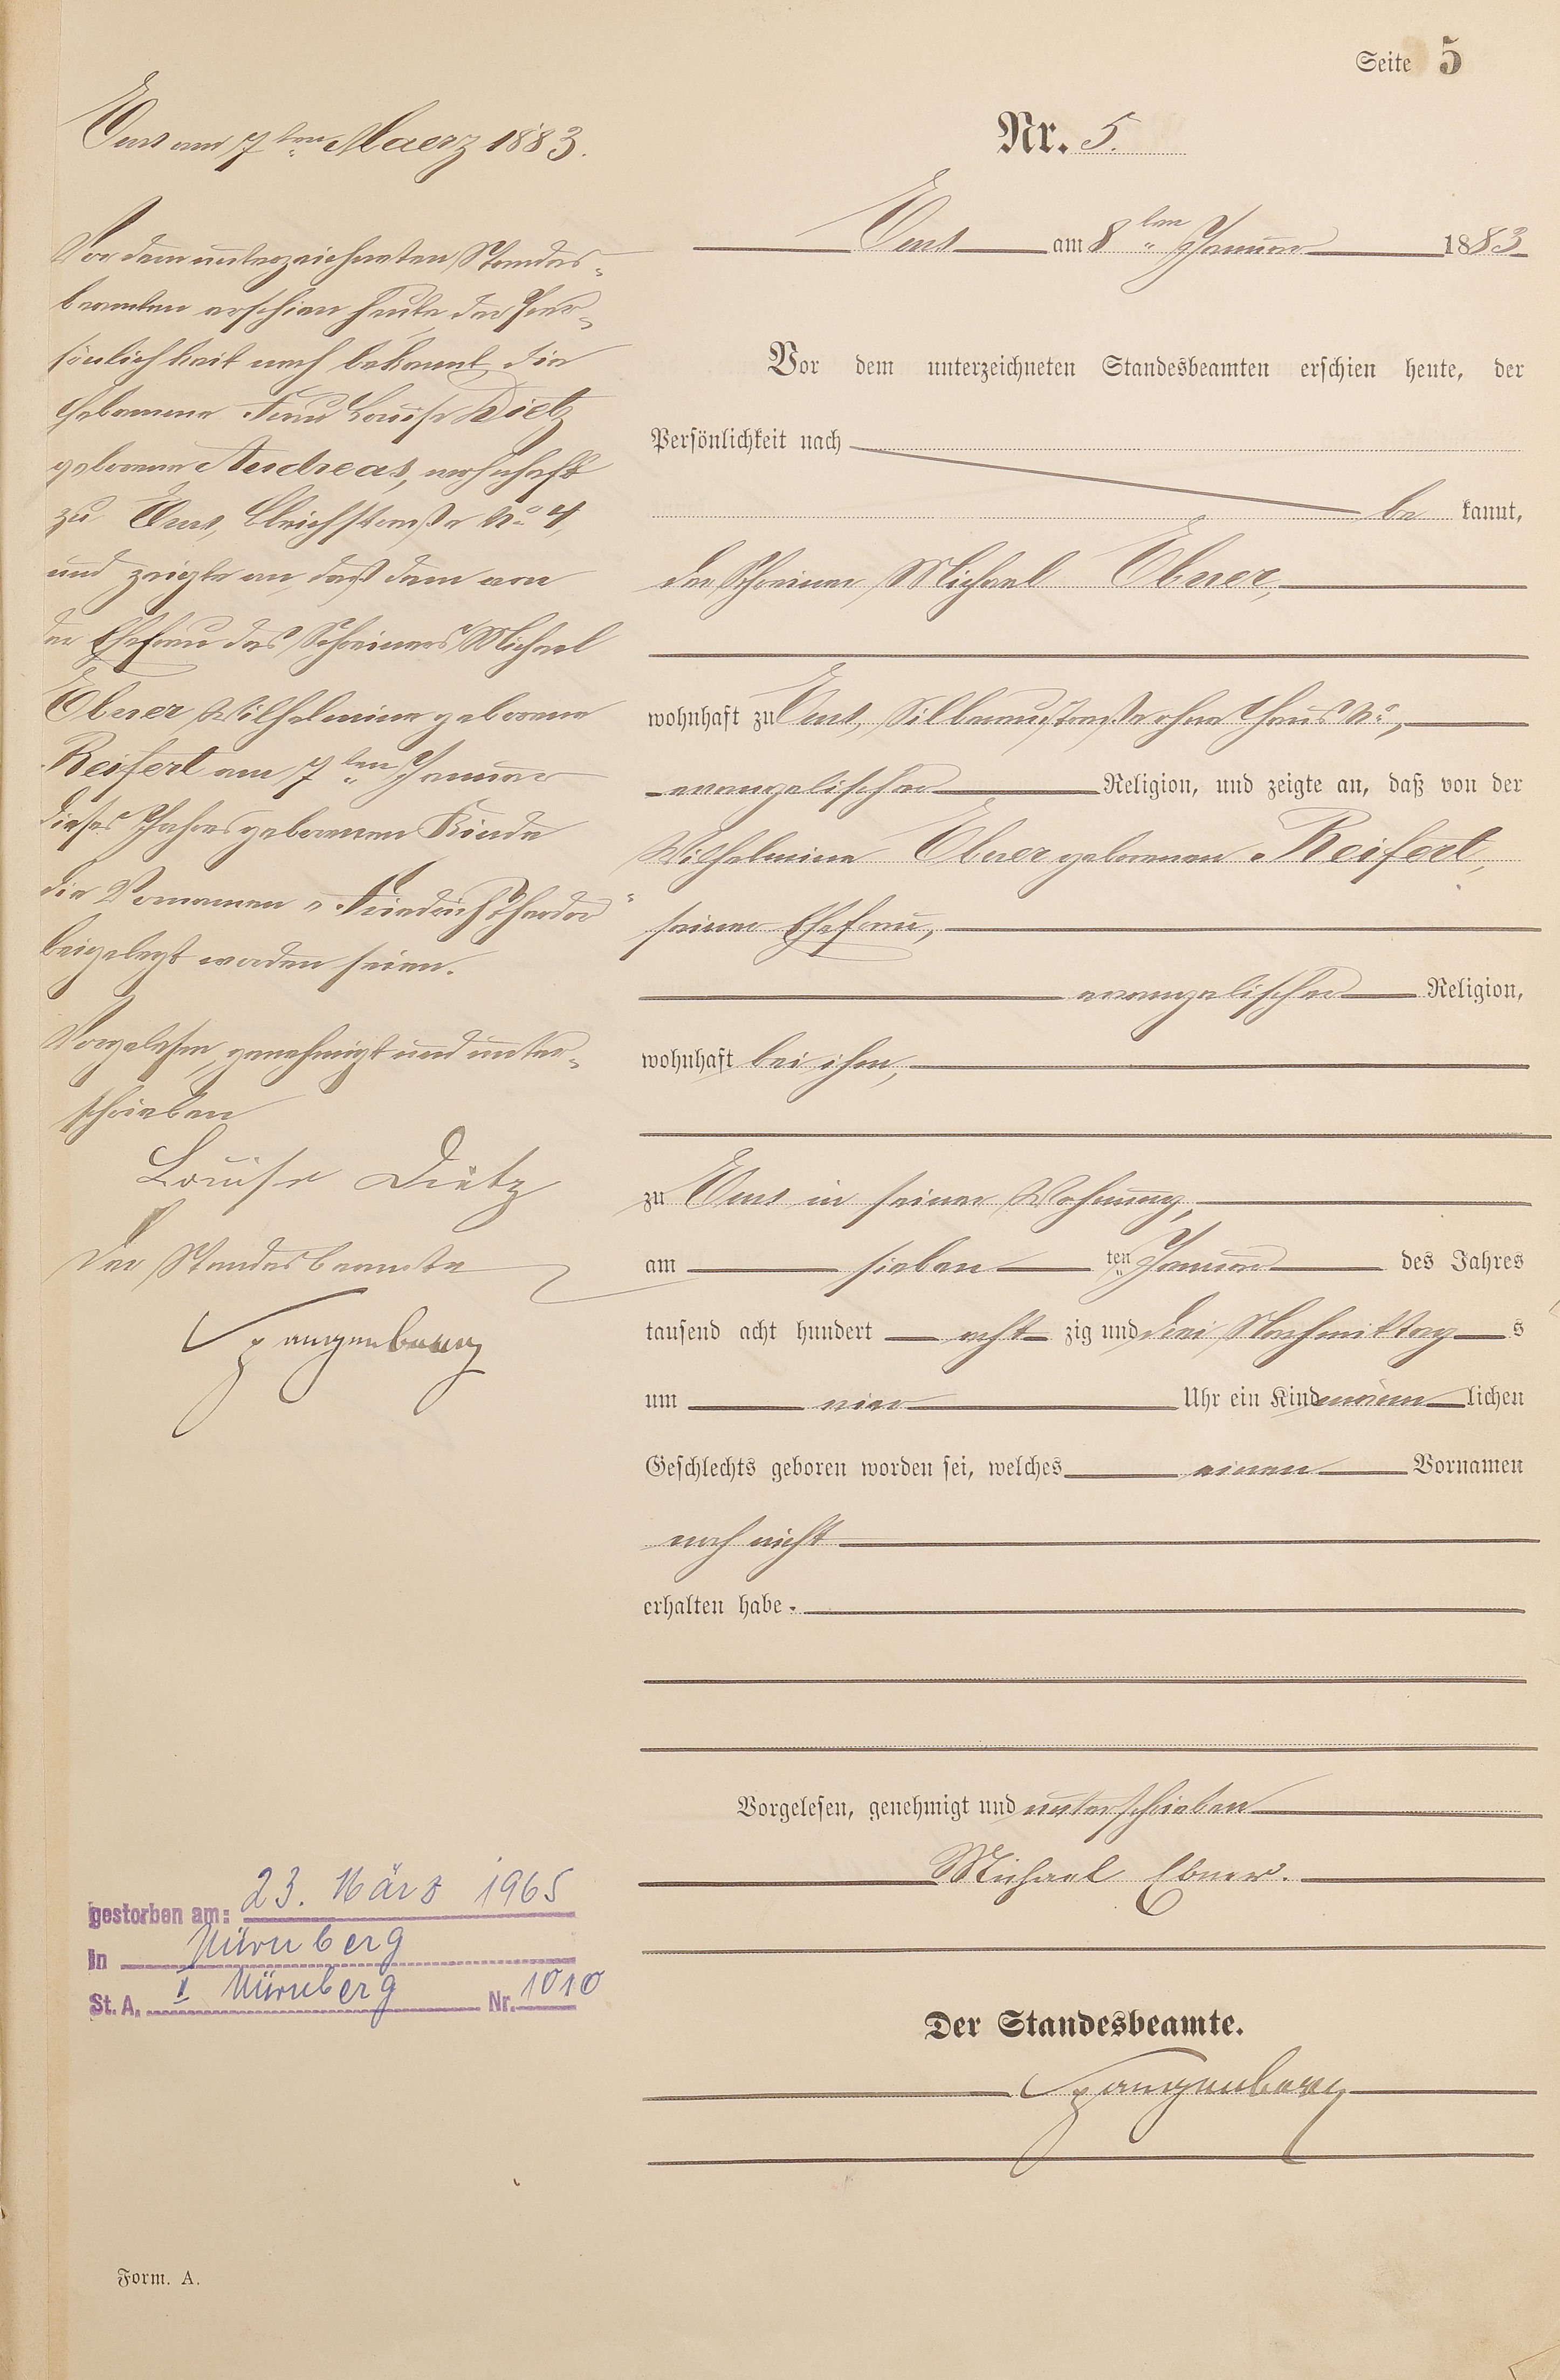 Seite 5
Nr. 5.
Ems am 8ten Januar 1883
Vor dem unterzeichneten Standesbeamten erschien heute, der
Persönlichkeit nach
be kannt,
der Schreiner Michael Ebner,
wohnhaft zu Ems, Silberaustraße ohne Haus No,
evangelischer Religion, und zeigte an, daß von der
Wilhelmine Ebner geborenen Reifert,
seiner Ehefrau,
evangelischer Religion,
wohnhaft bei ihm,
zu Ems in seiner Wohnung,
am sieben ten Januar des Jahres
tausend acht hundert acht zig und drei Nachmittag s
um vier Uhr ein Kind männ lichen
Geschlechts geboren worden sei, welches einen Vornamen
noch nicht
erhalten habe.
Vorgelesen, genehmigt und unterschrieben
Michael Ebner.
Der Standesbeamte.
Spangenberg
Ems am 7ten Maerz 1883.
Vor dem unterzeichneten Standes-
beamten erschien heute der Per-
sönlichkeit nach bekannt, die
Hebamme Frau Louise Dietz
geborene Andreas, wohnhaft
zu Ems, Bleichstraße No 4,
und zeigte an, daß dem von
der Ehefrau des Schreiners Michael
Ebner Wilhelmine geborene
Reifert am 7ten Januar
dieses Jahres geborenen Kinde
die Vornamen „Friedrich Theodor"
beigelegt worden seien.
Vorgelesen, genehmigt und unter-
schrieben
Louise Dietz
Der Standesbeamte
Spangenberg
gestorben am: 23. März 1965
in Nürnberg
St. A. I Nürnberg Nr. 1010
Form. A.